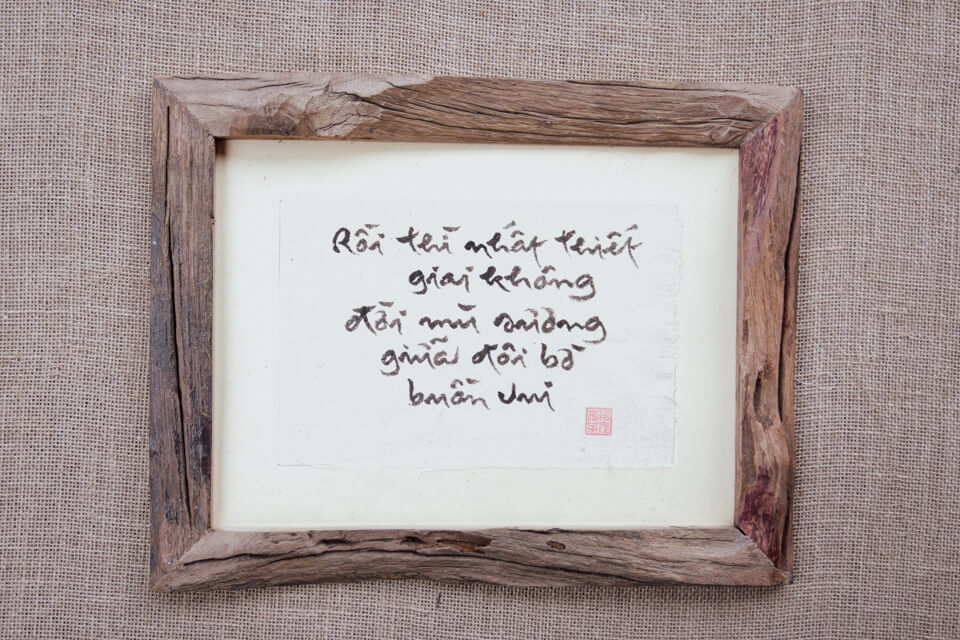 Rồi thì nhất thiết
giai không
đời mù sương
giữa đôi bờ
buồn vui